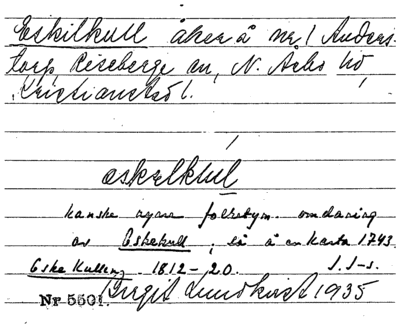 Eskilkull åker å nr 1 Anders-
torp Riseberga sn, N. Åsbo hd,
Kristianstad l.
eskelkul
kanske ngn folketym. omdaning
av Eskekull, så å en karta 1743.
Eske Kullen, 1812-20. S.I-s.
Nr 5601. Birgit Lundkvist 1935